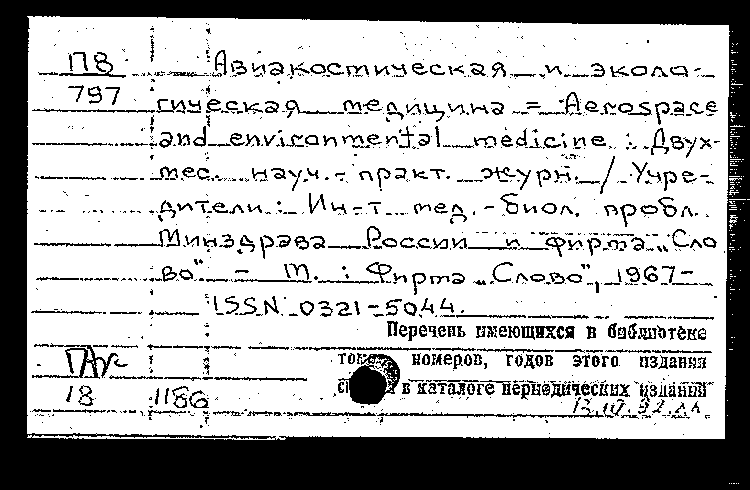 П8 Авиакостическая и эколо-
797 гическая медицина = Aerospace
and environmental medicine : Двух-
мес. науч.- практ. журн. / Учре-
дители : Ин-т мед.-биол. пробл.
Минздрава России и фирма „Сло
во" - М. : Фирма „Слово", 1967-
ISSN 0321-5044.
Перечень имеющихся в библиотеке
номеров, годов этого издания
в каталоге периодических изданий
18 1186